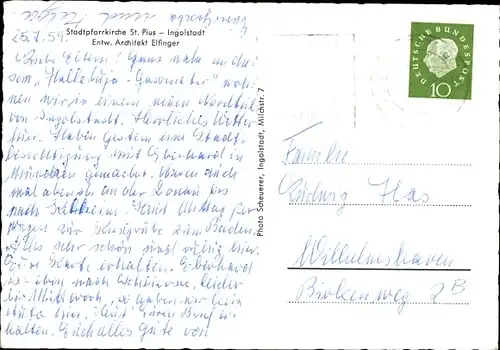 Eberhard und Helga
25.7.59.
Stadtpfarrkirche St. Pius – Ingolstadt
Entw. Architekt Elfinger
Liebe Eltern! Ganz nahe an die-
sem „Halleluja-Gasometer" woh-
nen wir in einem neuen Nordteil
von Ingolstadt. Herrliches Wetter
hier. Haben gestern eine Stadt-
besichtigung mit Eberhard in
München gemacht. Waren auch
mal abends an der Donau bis
nach Kelheim. Heut Mittag
gingen zur Kiesgrube zum Baden.
Alles sehr schön und ruhig hier.
Eure Karte erhalten. Eberhard
eben nach leider
bis Mittwoch, so haben wir kein
Auto hier. Heut Euren Brief er-
halten. Euch alles Gute von
Photo Scheuerer, Ingolstadt, Milchstr. 7
DEUTSCHE BUNDESPOST
10
Familie
Ludwig Has
Wilhelmshaven
Birkenweg 2B